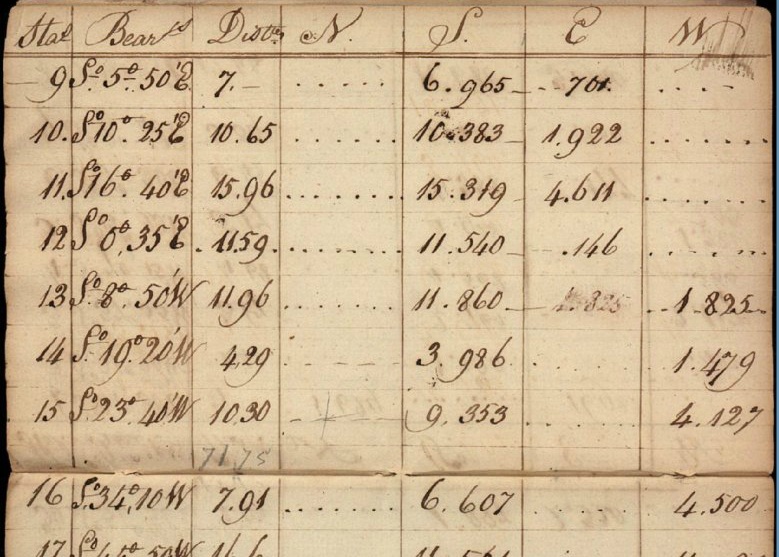 Stat Bear.gs Dists N. S. E W
9 So. 5o. 50'E 7. — ..... 6.965 .701 ....
10. So 10o. 25'E 10.65 ...... 10.383 1.922 ......
11. So 16o. 40'E 15.96 ....... 15.319 4.611 ......
12 So 0o, 35'E 11.59 ....... 11.540 .146 ......
13 So. 8o. 50'W 11.96 ...... 11.860 1.825 1.825
14 So. 19o. 20'W 4.29 3.986 .... 1.479
15 So. 23o. 40'W 10.30 9.353 ..... 4.127
7175
16 So. 34o, 10W 7.91 ...... 6.607 ..... 4.500
17